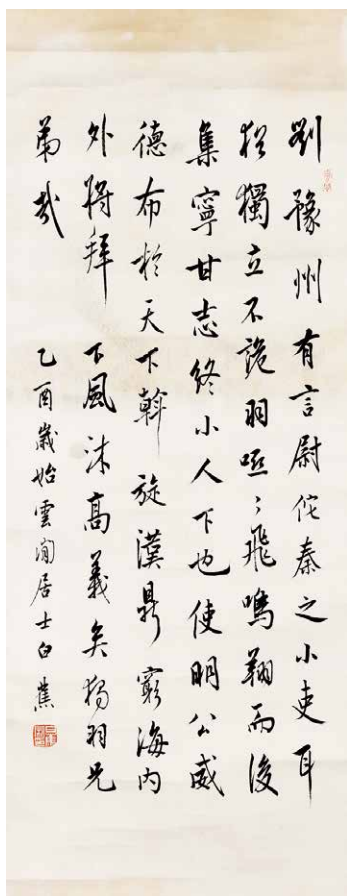 劉豫州有言尉佗秦之小吏耳
猶獨立不詭羽啞〻飛鳴翔而後
集寧甘志終小人下也使明公威
德布於天下斡旋漢鼎窮海內
外將拜下風沐高義矣獨羽兄
弟哉
乙酉歲始雲間居士白蕉